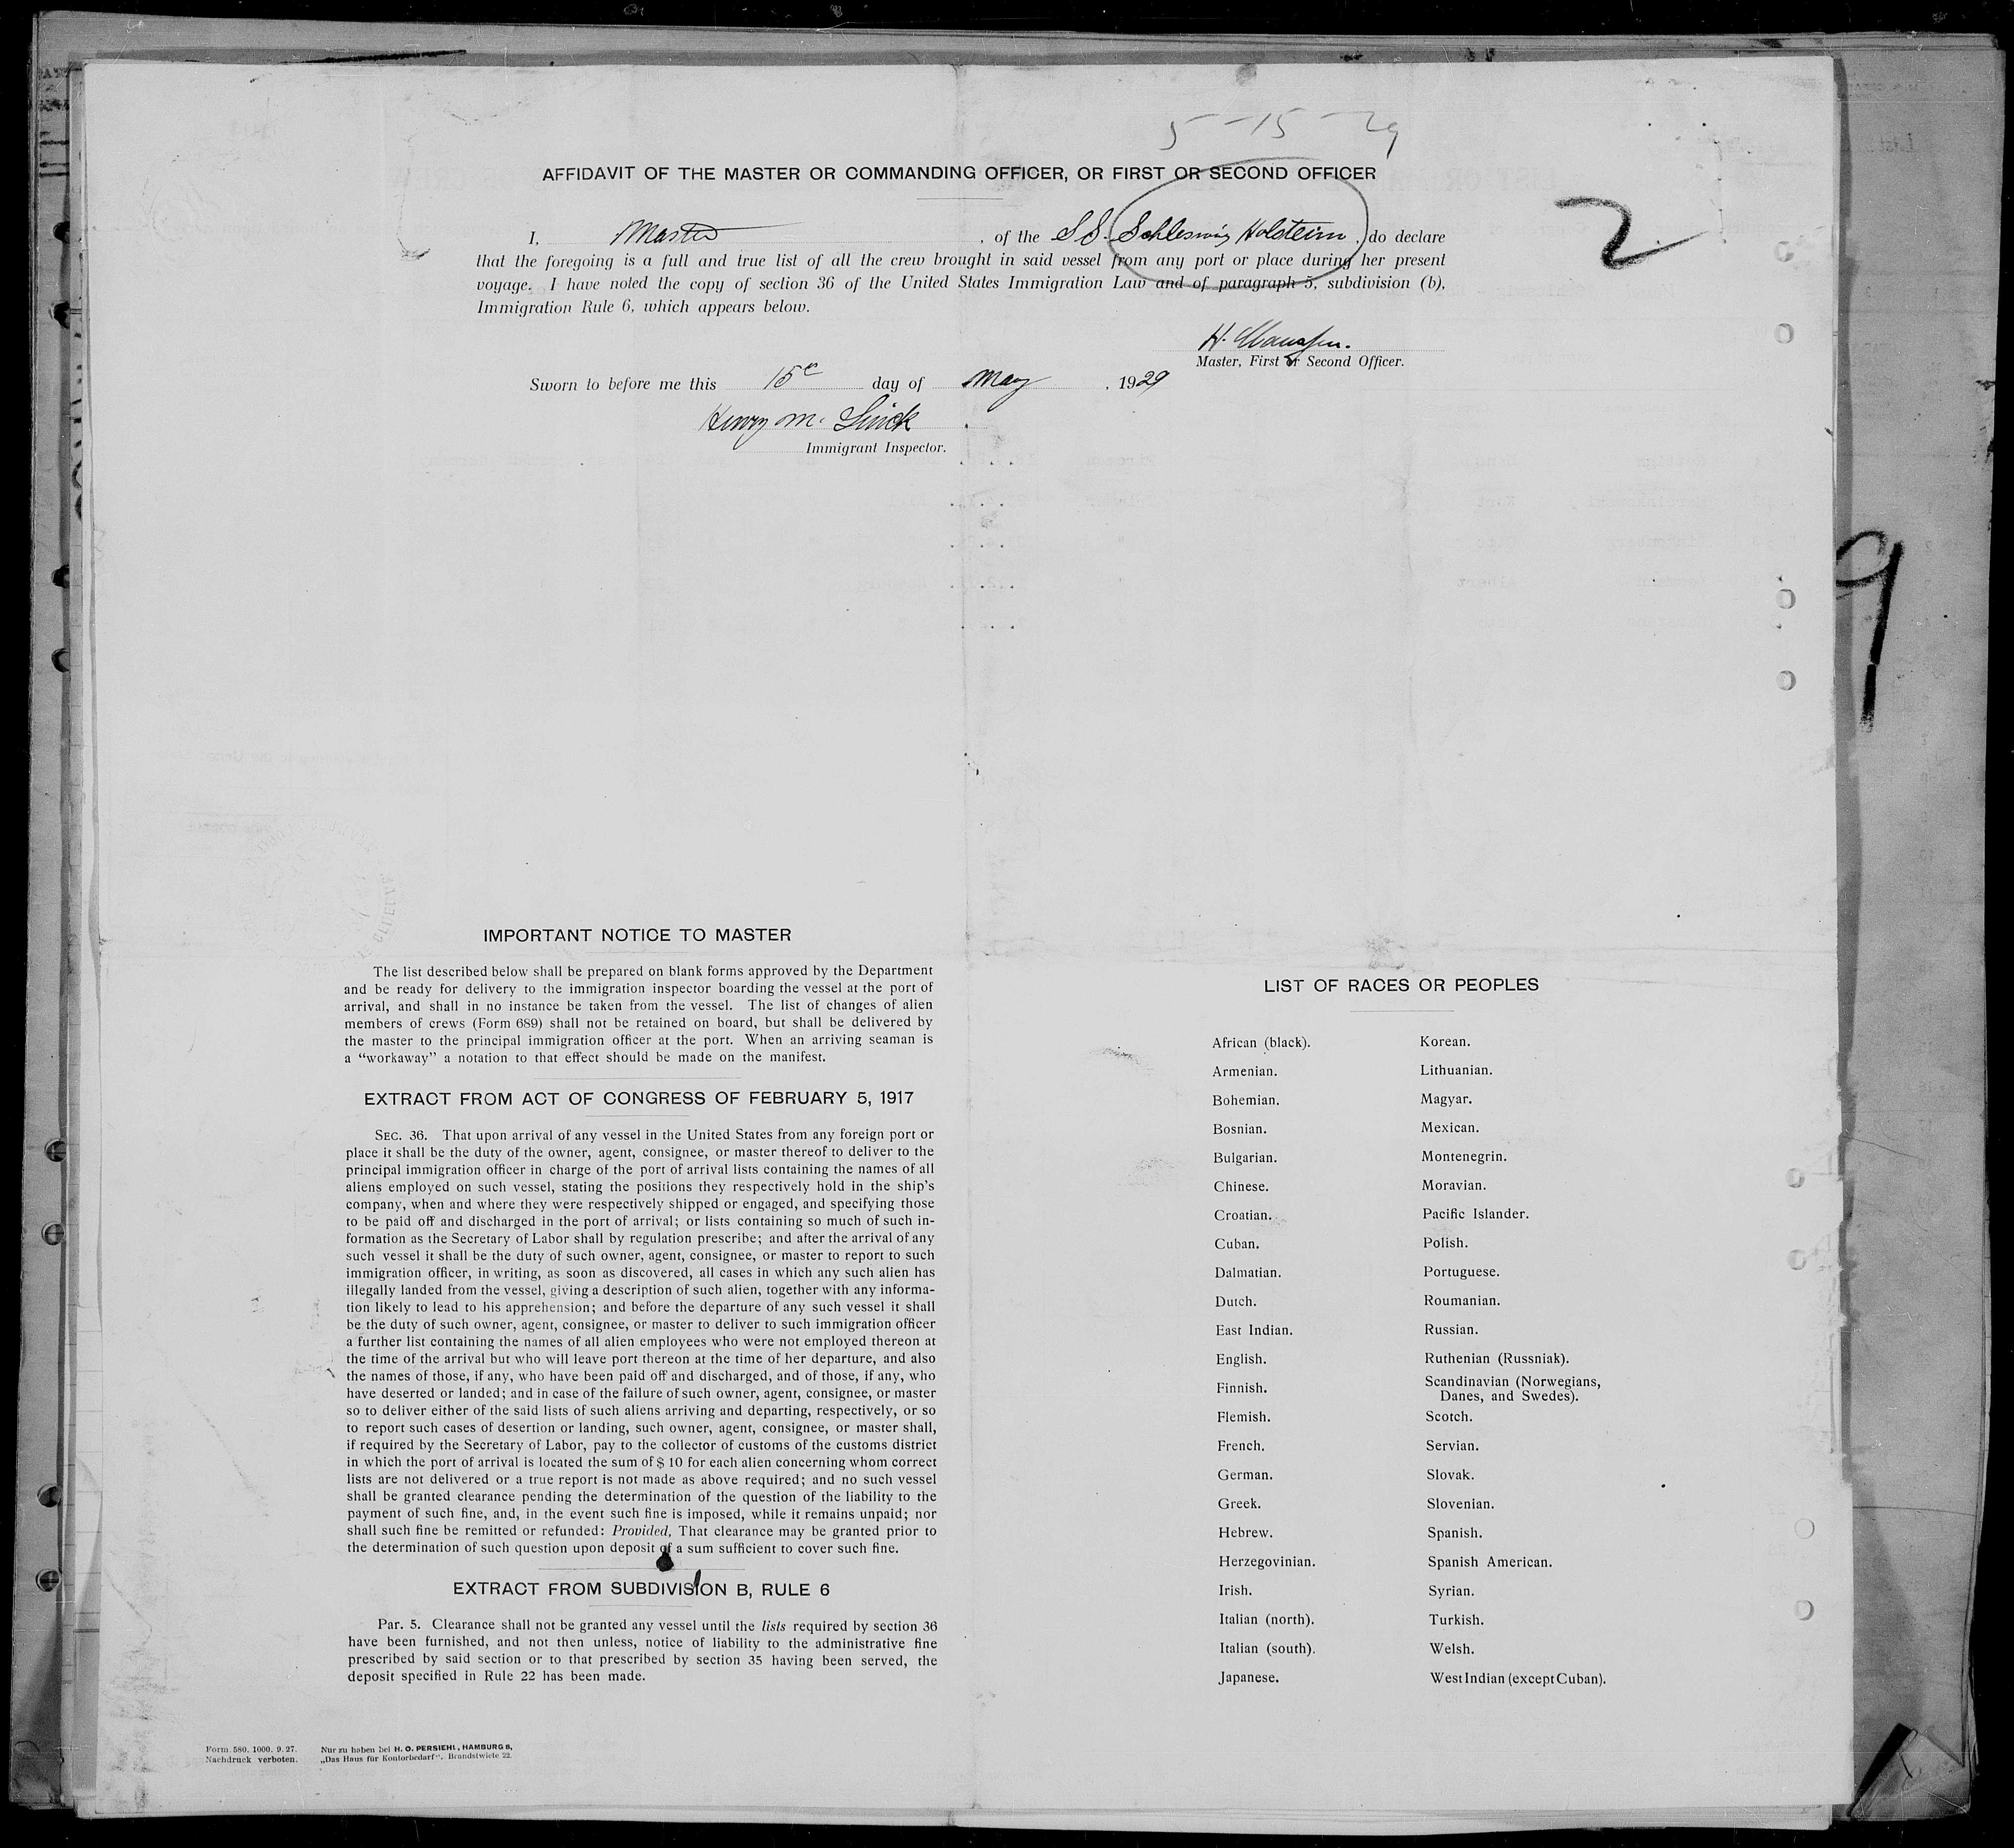 5-15-29
AFFIDAVIT OF THE MASTER OR COMMANDING OFFICER, OR FIRST OR SECOND OFFICER
2
I, Master, of the S.S. Schleswig Holstein, do declare
that the foregoing is a full and true list of all the crew brought in said vessel from any port or place during her present
voyage. I have noted the copy of section 36 of the United States Immigration Law and of paragraph 5, subdivision (b),
Immigration Rule 6, which appears below.
H.
Master, First or Second Officer.
Sworn to before me this 15 day of May, 1929
Henry M.
Immigrant Inspector.
9
IMPORTANT NOTICE TO MASTER
The list described below shall be prepared on blank forms approved by the Department
and be ready for delivery to the immigration inspector boarding the vessel at the port of
arrival, and shall in no instance be taken from the vessel. The list of changes of alien
members of crews (Form 689) shall not be retained on board, but shall be delivered by
the master to the principal immigration officer at the port. When an arriving seaman is
a “workaway” a notation to that effect should be made on the manifest.
EXTRACT FROM ACT OF CONGRESS OF FEBRUARY 5, 1917
SEC. 36. That upon arrival of any vessel in the United States from any foreign port or
place it shall be the duty of the owner, agent, consignee, or master thereof to deliver to the
principal immigration officer in charge of the port of arrival lists containing the names of all
aliens employed on such vessel, stating the positions they respectively hold in the ship's
company, when and where they were respectively shipped or engaged, and specifying those
to be paid off and discharged in the port of arrival; or lists containing so much of such in-
formation as the Secretary of Labor shall by regulation prescribe; and after the arrival of any
such vessel it shall be the duty of such owner, agent, consignee, or master to report to such
immigration officer, in writing, as soon as discovered, all cases in which any such alien has
illegally landed from the vessel, giving a description of such alien, together with any informa-
tion likely to lead to his apprehension; and before the departure of any such vessel it shall
be the duty of such owner, agent, consignee, or master to deliver to such immigration officer
a further list containing the names of all alien employees who were not employed thereon at
the time of the arrival but who will leave port thereon at the time of her departure, and also
the names of those, if any, who have been paid off and discharged, and of those, if any, who
have deserted or landed; and in case of the failure of such owner, agent, consignee, or master
so to deliver either of the said lists of such aliens arriving and departing, respectively, or so
to report such cases of desertion or landing, such owner, agent, consignee, or master shall,
if required by the Secretary of Labor, pay to the collector of customs of the customs district
in which the port of arrival is located the sum of $ 10 for each alien concerning whom correct
lists are not delivered or a true report is not made as above required; and no such vessel
shall be granted clearance pending the determination of the question of the liability to the
payment of such fine, and, in the event such fine is imposed, while it remains unpaid; nor
shall such fine be remitted or refunded: Provided, That clearance may be granted prior to
the determination of such question upon deposit of a sum sufficient to cover such fine.
EXTRACT FROM SUBDIVISION B, RULE 6
Par. 5. Clearance shall not be granted any vessel until the lists required by section 36
have been furnished, and not then unless, notice of liability to the administrative fine
prescribed by said section or to that prescribed by section 35 having been served, the
deposit specified in Rule 22 has been made.
Form 580. 1000. 9. 27.
Nachdruck verboten.
Nur zu haben bei H. O. PERSIEHL, HAMBURG 8,
„Das Haus für Kontorbedarf“. Brandstwiete 22.
LIST OF RACES OR PEOPLES
African (black).
Armenian.
Bohemian.
Bosnian.
Bulgarian.
Chinese.
Croatian.
Cuban.
Dalmatian.
Dutch.
East Indian.
English.
Finnish.
Flemish.
French.
German.
Greek.
Hebrew.
Herzegovinian.
Irish.
Italian (north).
Italian (south).
Japanese.
Korean.
Lithuanian.
Magyar.
Mexican.
Montenegrin.
Moravian.
Pacific Islander.
Polish.
Portuguese.
Roumanian.
Russian.
Ruthenian (Russniak).
Scandinavian (Norwegians,
Danes, and Swedes).
Scotch.
Servian.
Slovak.
Slovenian.
Spanish.
Spanish American.
Syrian.
Turkish.
Welsh.
West Indian (except Cuban).